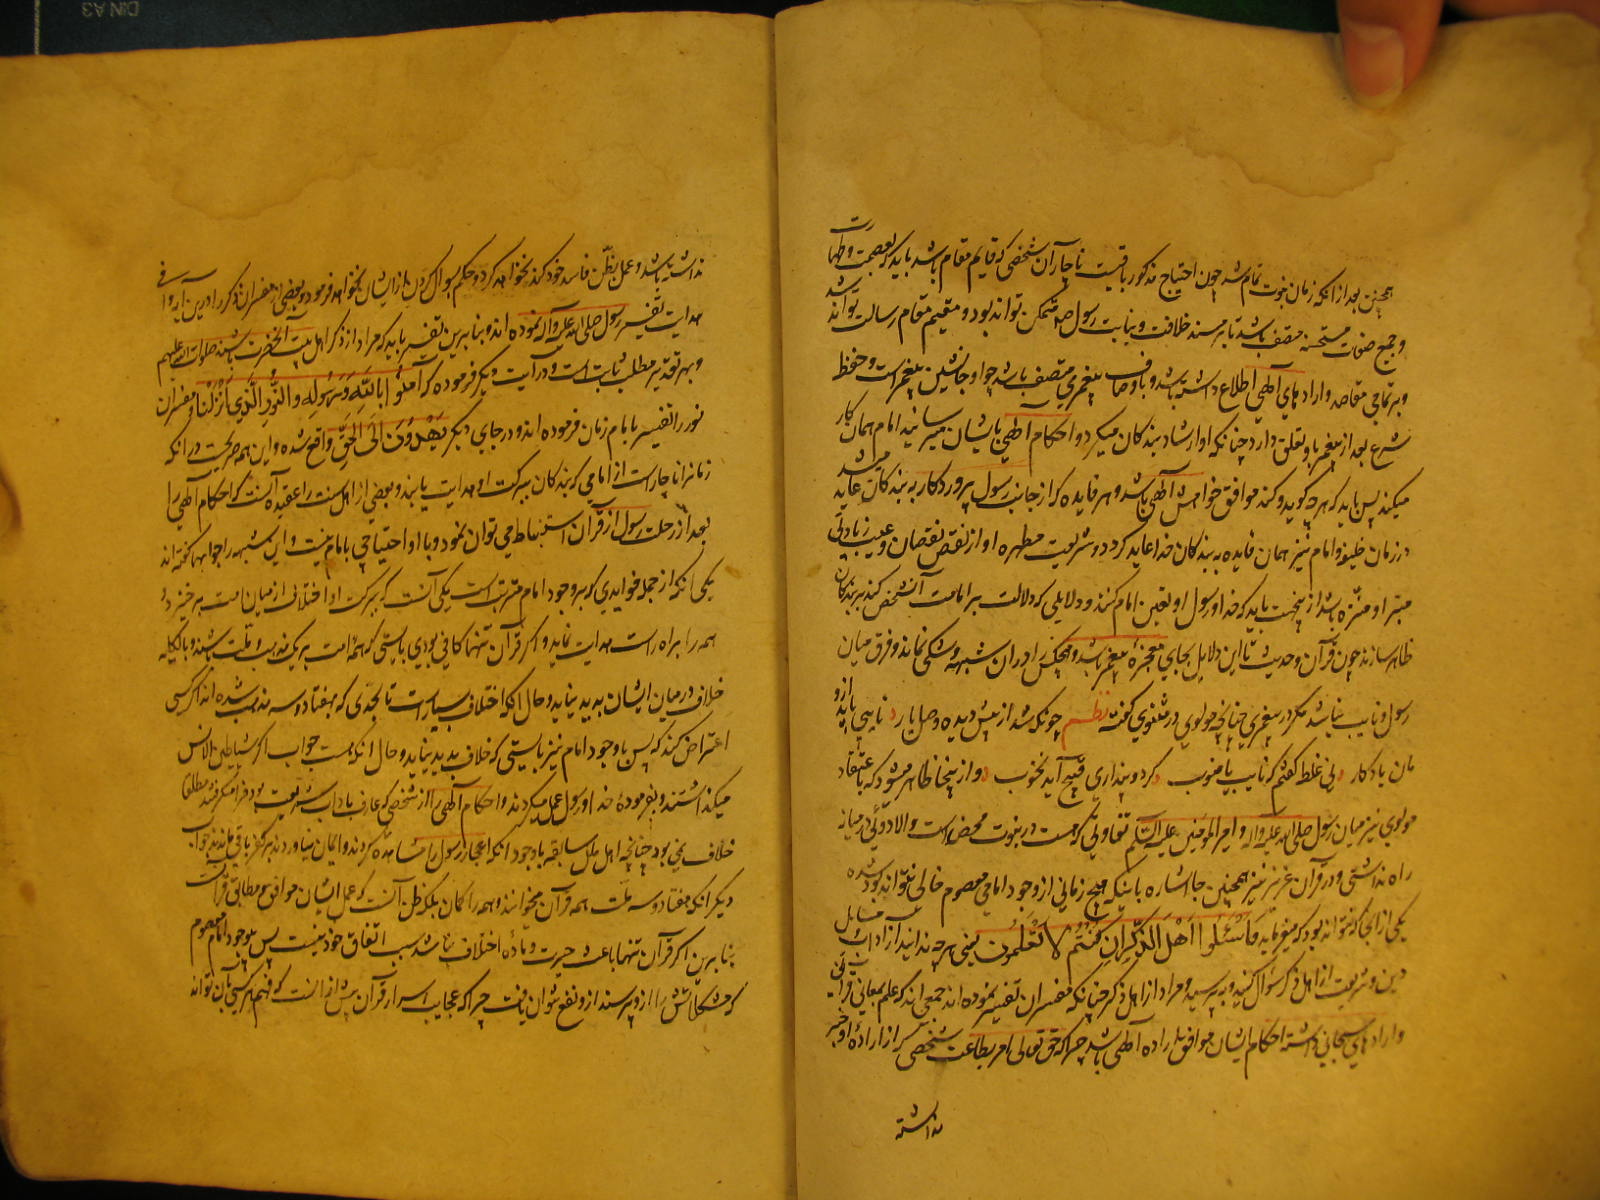 همچنین بعد از آنکه زمان نبوت تمام شد چون احتیاج مذکور باقیست ناچار آن شخصی که قایم مقام باشد باید که بعصمت و طهارت
و جمیع صفات مستحسنه متصف باشد تا بر مسند خلافت و نیابت رسول صلعم متمکن تواند بود و مقیم مقام رسالت تواند شد
و بر تمامی مقاصد و ارادهای آلهی اطلاع داشته باشد و باوصاف پیغمبری متصف باشد چو او جانشین پیغمبر است و حفظ
شرع بعد از پیغمبر باو تعلق دارد چنانکه او ارشاد بندکان میکرد و احکام آلهی بایشان میرسانید امام همان کار
میکند پس باید که هرچه کوید و کند موافق خواهش آلهی باشد و هر فایده که از جانب رسول پروردکار به بندکان عاید میشد
در زمان خلیفه و امام نیز همان فایده به بندکان خدا عاید کردد و شریعت مطهره او از نقص نقصان و عیب زیادتی
مبرا و منزه باشد ازینجهت باید که خدا و رسول او تعیین امام کنند و دلایلی که دلالت بر امامت آنشخص کند بر بندکان
ظاهر سازند چون قرآن و حدیث تا این دلایل بجای معجزه پیغمبر باشد و هیچکس را در ان شبهه و شکی نماند و فرق میان
رسول و نایب نباشد مکر در پیغمبری چنانچه مولوی در مثنوی کفته نظم چونکه شد از پیش دیده وصل یار نایبی باید ازو
مان یادکار نی غلط کفتم که نایب یا منوب کر دو پنداری قبیح آید نخوب و ازینجا ظاهر میشود که باعتقاد
مولوی نیز میان رسول صلی الله علیه واله و امیر المومنین علیه السلام تفاوتی که هست در نبوت محض است و الا دوئی در میانه
راه نداشتی و در قرآن عزیز نیز همچنین جا اشاره باینکه هیچ زمانی از وجود امامی معصوم خالی نتواند بود شده
یکی از انجا که نتواند بود که میفرماید فَاسْئَلُوا اَهْلَ الذِّکْرِ اِن کُنْتُمْ لا تَعْلَمُون یعنی هرچه ندانید از ادات مسایل
دین و شریعت از اهل ذکر سؤال کنید و بپرسید و مراد از اهل ذکر چنانکه مفسران تفسیر نموده اند جمعی اند که علم بمعانی قرآنی
و ارادهای سبحانی داشته احکام ایشان موافق با اراده آلهی باشد چرا که حق تعالی امر بطاعت شخصی که از ارادهٔ او خبر
نداشته
نداشته باشد و عمل بظن فاسد خود کند نخواهد کرد و حکم بسوال کردن از ایشان نخواهد فرمود و بعضی از مفسران ذکر را درین آیه وافی
هدایت تفسیر برسول صلی الله علیه واله نموده اند و بنا برین تفسیر باید که مراد از ذکر اهل بیت آنحضرت باشند صلوات الله علیهم
و بهر تقدیر مطلب ثابت است و در آیت دیکر فرموده که آمِنُوا بِاللّهِ وَرَسُولِهِ وَالنُّورِ الَّذِی اَنْزَلْنا و مفسران
نور را تفسیر بامام زمان فرموده اند و در جای دیکر یَهْدُونَ اِلَی الْحَقِّ واقع شده و این همه صریحست در انکه
زمانرا ناچار است از امامی که بندکان ببرکت او هدایت یابند و بعضی از اهل سنت را عقیده آنست که احکام آلهی را
بعد از رحلت رسول از قرآن استنباط می توان نمود و با او احتیاجی بامام نیست و این شبهه را جوابها کفته اند
یکی آنکه از جمله فوایدی که بر وجود امام مترتب است یکی آنست که ببرکت او اختلاف از میان امت برخیزد و
همه را براه راست هدایت نماید و اکر قرآن تنها کافی بودی بایستی که همه امت بر یک مذهب و ملت باشند و بالکلیه
خلاف در میان ایشان پدید نیاید و حال آنکه اختلاف بسیار است تا بحدی که هفتاد و سه مذهب شده اند اکر کسی
اعتراض کند که پس با وجود امام نیز بایستی که خلاف پدید نیاید و حال انکه هست جواب اکر شیاطین الانس
میکذاشتند و بفرمودهٔ خدا و رسول عمل میکردند و احکام آلهی را از شخصی که عارف باداب شریعت بود فرا میکرفتند مطلقا
خلاف نمی بود چنانچه اهل ملل سابقه باوجود انکه اعجاز رسول را مشاهده کردند و ایمان نیاوردند بر کفر باقی ماندند جواب
دیکر انکه هفتاد و سه ملت همه قرآن میخوانند و همه را کمان بلکه ظن آنست که عمل ایشان موافق و مطابق قرآنست
بنا برین اکر قرآن تنها باعث حیرت و مادهٔ اختلاف نباشد سبب اتفاق خود نیست پس بوجود امام معصوم
که مشکلاتش را ازو پرسند ازو نفع نتوان یافت چرا که عجایب اسرار قرآن بیش از انست که فهم هر کسی بان تواند